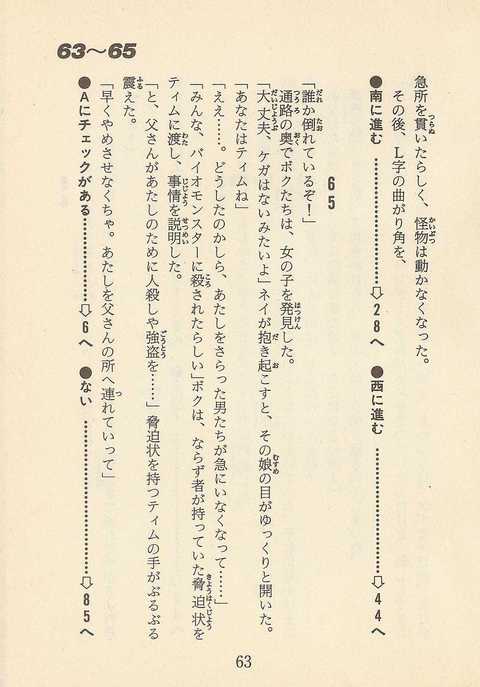 63〜65
急所を貫いたらしく、怪物は動かなくなった。
その後、L字の曲がり角を、
●南に進む ……………⇨28へ ●西に進む ……………⇨44へ
65
「誰か倒れているぞ！」
通路の奥でボクたちは、女の子を発見した。
「大丈夫、ケガはないみたいよ」ネイが抱き起こすと、その娘の目がゆっくりと開いた。
「あなたはティムね」
「ええ……。どうしたのかしら、あたしをさらった男たちが急にいなくなって……」
「みんな、バイオモンスターに殺されたらしい」ボクは、ならず者が持っていた脅迫状を
ティムに渡し、事情を説明した。
「と、父さんがあたしのために人殺しや強盗を……」脅迫状を持つティムの手がぶるぶる
震えた。
「早くやめさせなくちゃ。あたしを父さんの所へ連れていって」
●Aにチェックがある……………⇨6へ ●ない ……………⇨85へ
63